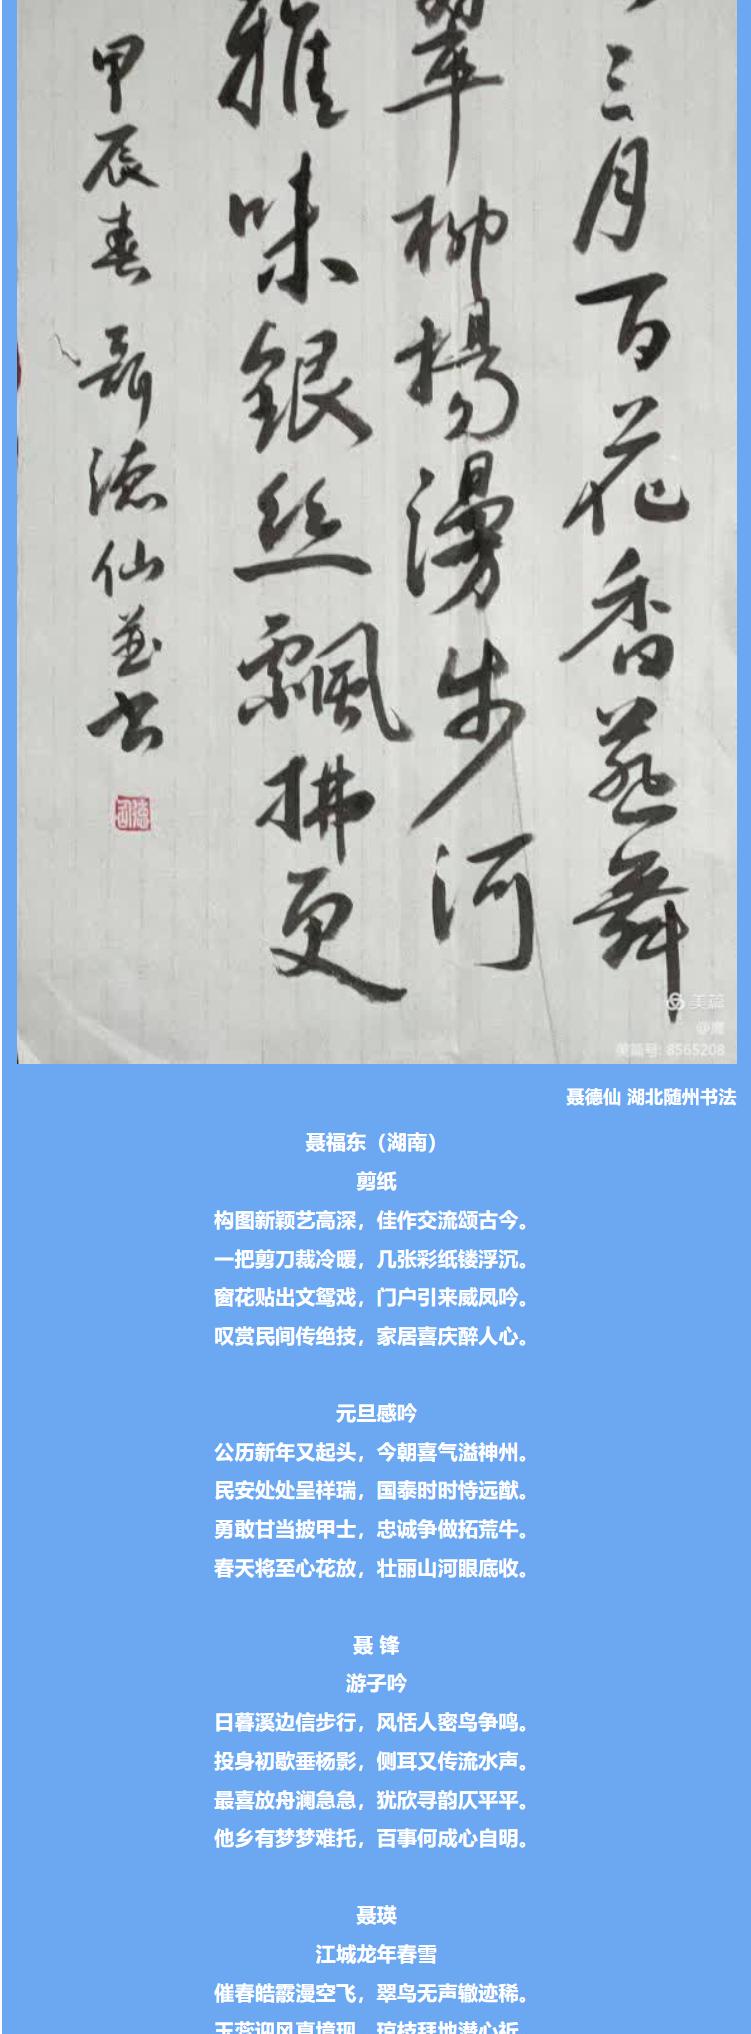 三月百花香燕舞
翠柳楊漫步河
雅味銀丝飄拂更
甲辰春聶德仙並书
美篇
@鹰
美篇号: 8565208
聂德仙 湖北随州书法
聂福东（湖南）
剪纸
构图新颖艺高深，佳作交流颂古今。
一把剪刀裁冷暖，几张彩纸镂浮沉。
窗花贴出文鸳戏，门户引来威凤吟。
叹赏民间传绝技，家居喜庆醉人心。
元旦感吟
公历新年又起头，今朝喜气溢神州。
民安处处呈祥瑞，国泰时时恃远猷。
勇敢甘当披甲士，忠诚争做拓荒牛。
春天将至心花放，壮丽山河眼底收。
聂 锋
游子吟
日暮溪边信步行，风恬人密鸟争鸣。
投身初歇垂杨影，侧耳又传流水声。
最喜放舟澜急急，犹欣寻韵仄平平。
他乡有梦梦难托，百事何成心自明。
聂瑛
江城龙年春雪
催春皓霰漫空飞，翠鸟无声辙迹稀。
玉蕊迎风真境现，琼枝拜地潜心祈。